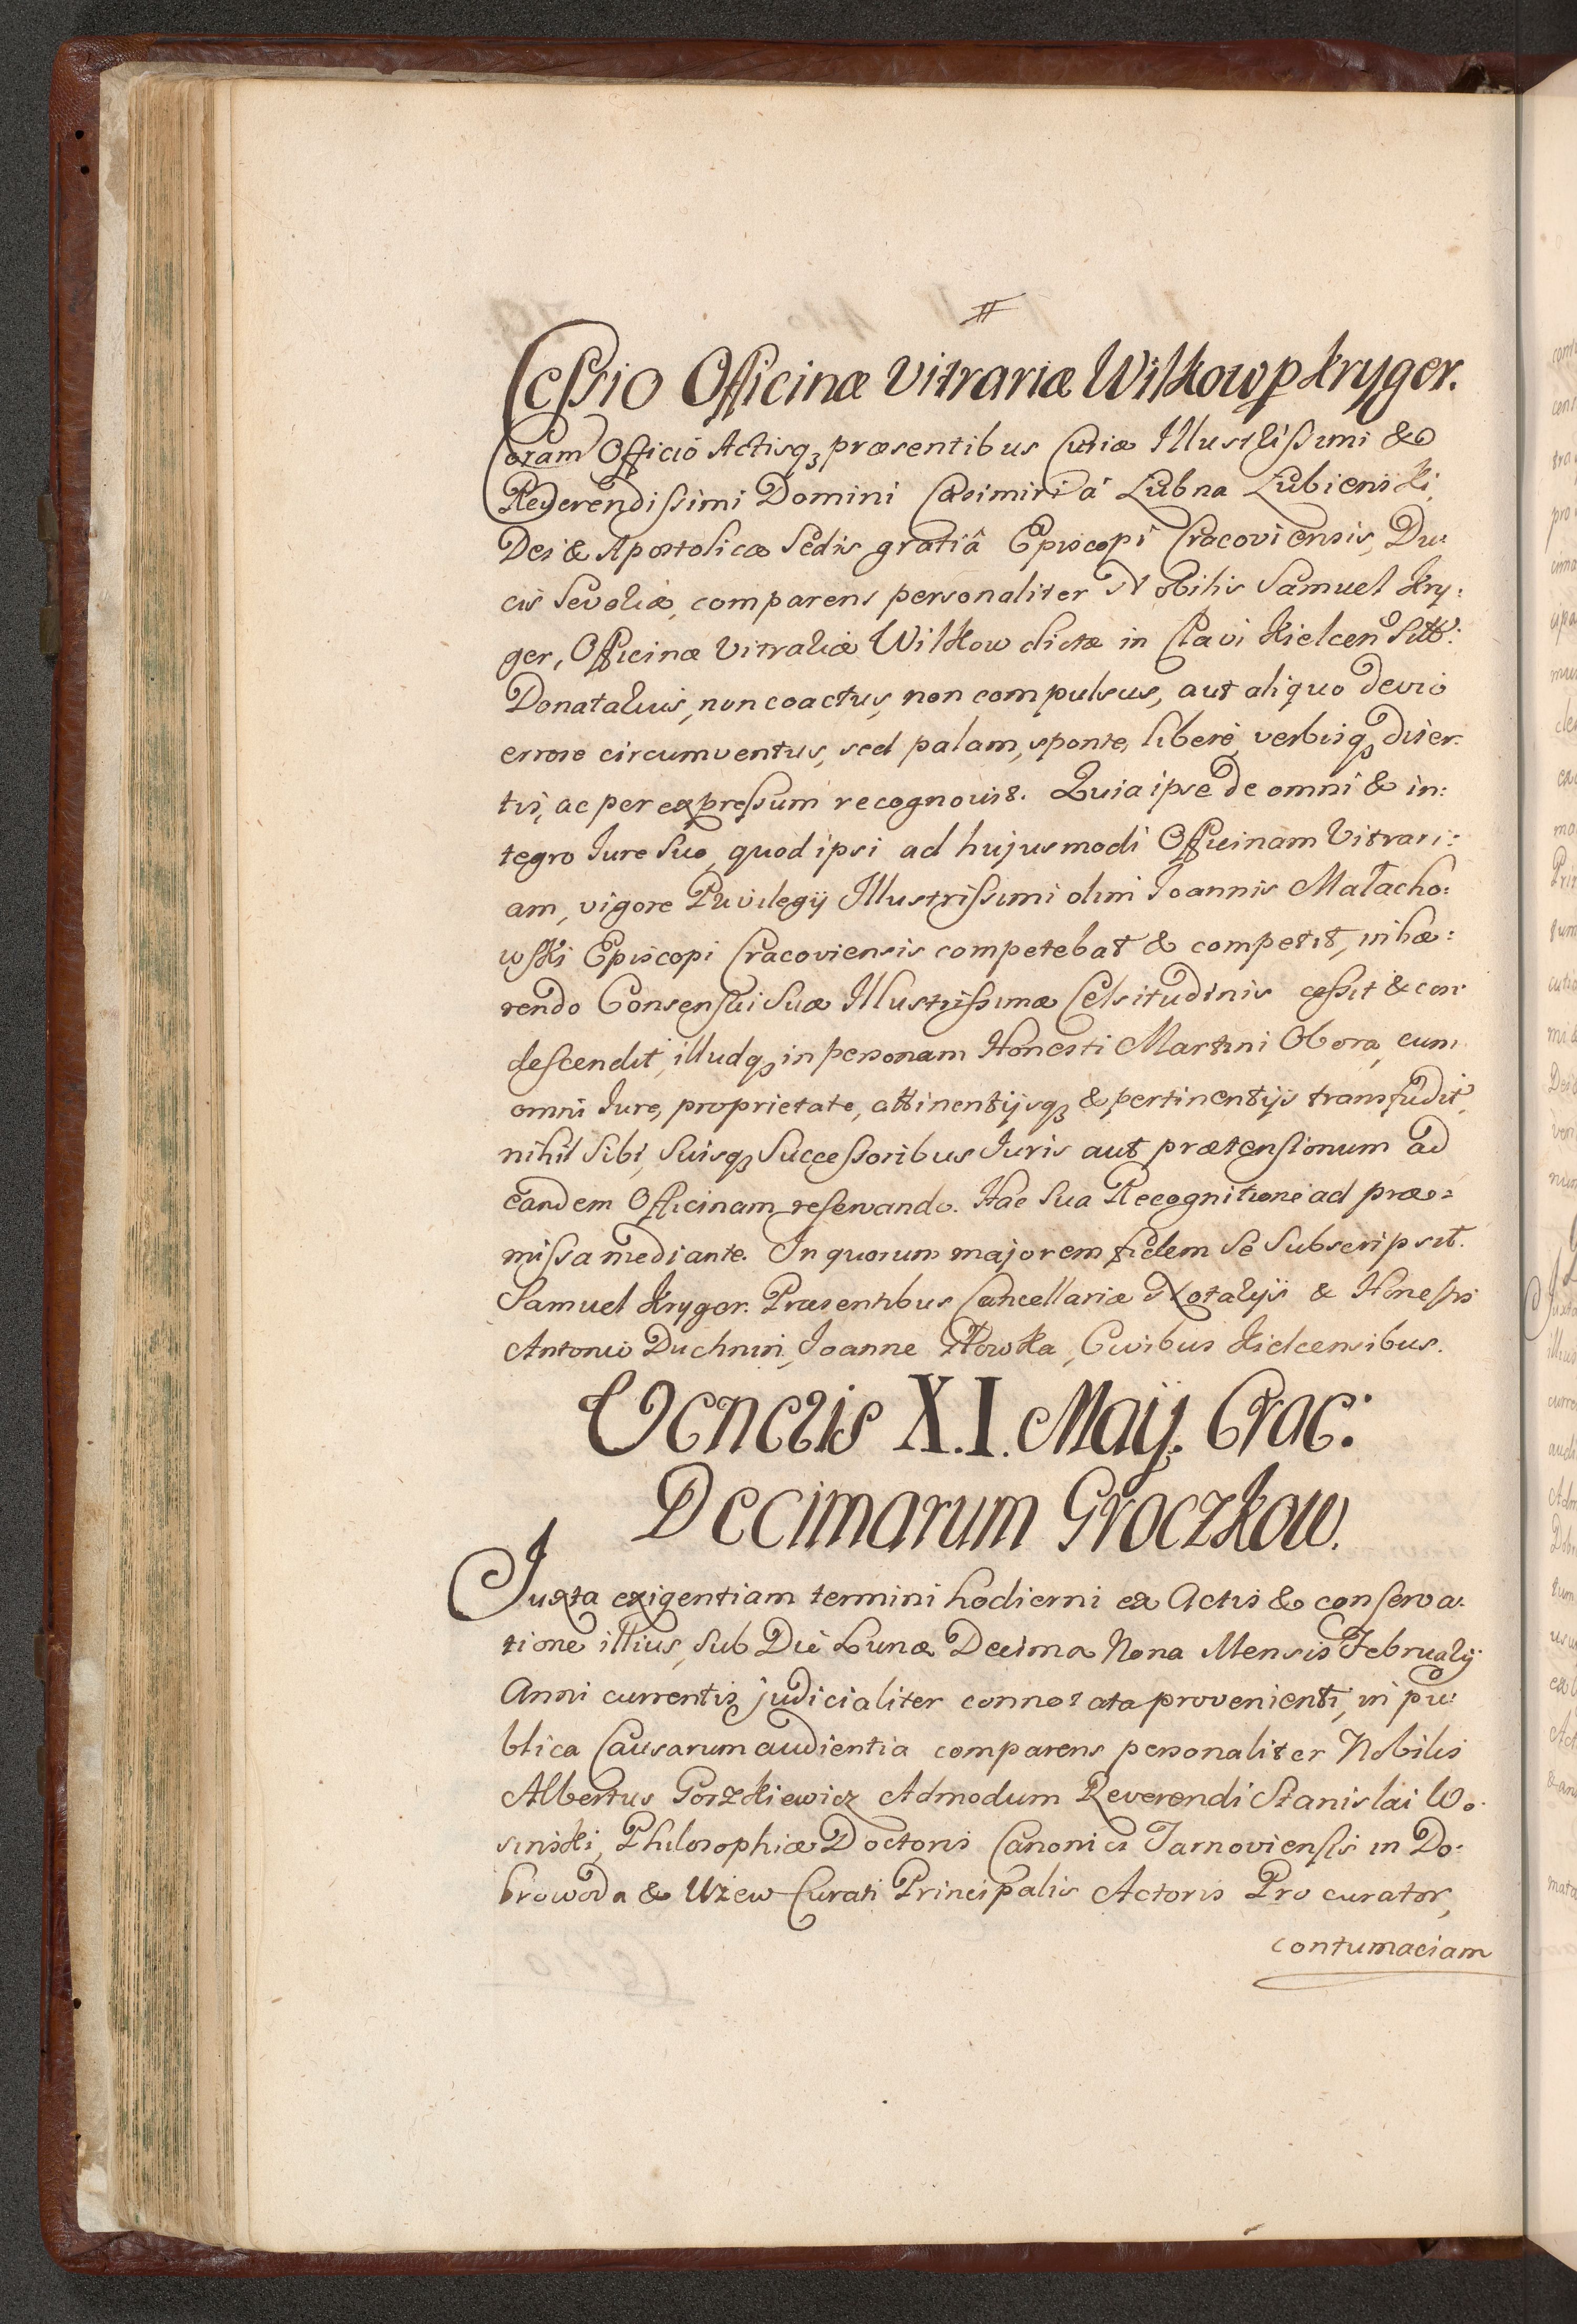 Cessio Officinæ Vitrariæ Wilkow p Kryger.
Coram Officio Actisq; præsentibus Curiæ Illustrissimi &
Reverendissimi Domini Casimiri á Łubna Łubienski,
Dei & Apostolicæ Sedis gratiâ Episcopi Cracoviensis, Du:
cis Severiæ, comparens personaliter Nobilis Samuel Kry:
ger, Officinæ Vitrariæ Wilkow dictæ in Clavi Kielcen
Donatarius, non coactus, non compulsus, aut aliquo devio
errore circumventus, sed palam, sponte, liberè, verbisq; diser:
tis, ac per expressum recognovit. Quia ipse de omni & in:
tegro Iure Suo, quod ipsi ad hujusmodi Officinam Vitrari:
am, vigore Privilegij Illustrissimi olim Ioannis Małacho:
wski Episcopi Cracoviensis competebat & competit, inhæ:
rendo Consensui Suæ Illustrissimæ Celsitudinis cessit & con:
descendit, illudq; in personam Honesti Martini Obora, cum
omni Iure, proprietate, attinentijsq; & pertinentijs transfudit,
nihil Sibi, Suisq; Successoribus Iuris aut prætensionum ad
eandem Officinam reservando. Hac Sua Recognitione ad præ:
missa mediante. In quorum majorem fidem Se Subscripsit.
Samuel Kryger. Præsentibus Cancellariæ Notarijs & Honestis
Antonio Duchnin, Ioanne Civibus Kielcensibus.
Veneris X.I. Maij. Crac:
Decimarum Groczkow.
Iuxta exigentiam termini hodierni ex Actis & conserva:
tione illius, sub Die Lunæ Decima Nona Mensis Februarij
Anni currentis judicialiter connotata provenienti, in pu:
blica Causarum audientia comparens personaliter Nobilis
Albertus Gorzkiewicz Admodum Reverendi Stanislai Wo:
sinski, Philosophiæ Doctoris Canonici Tarnoviensis in Do:
browoda & Uiew Curati Principalis Actoris Procurator,
contumaciam